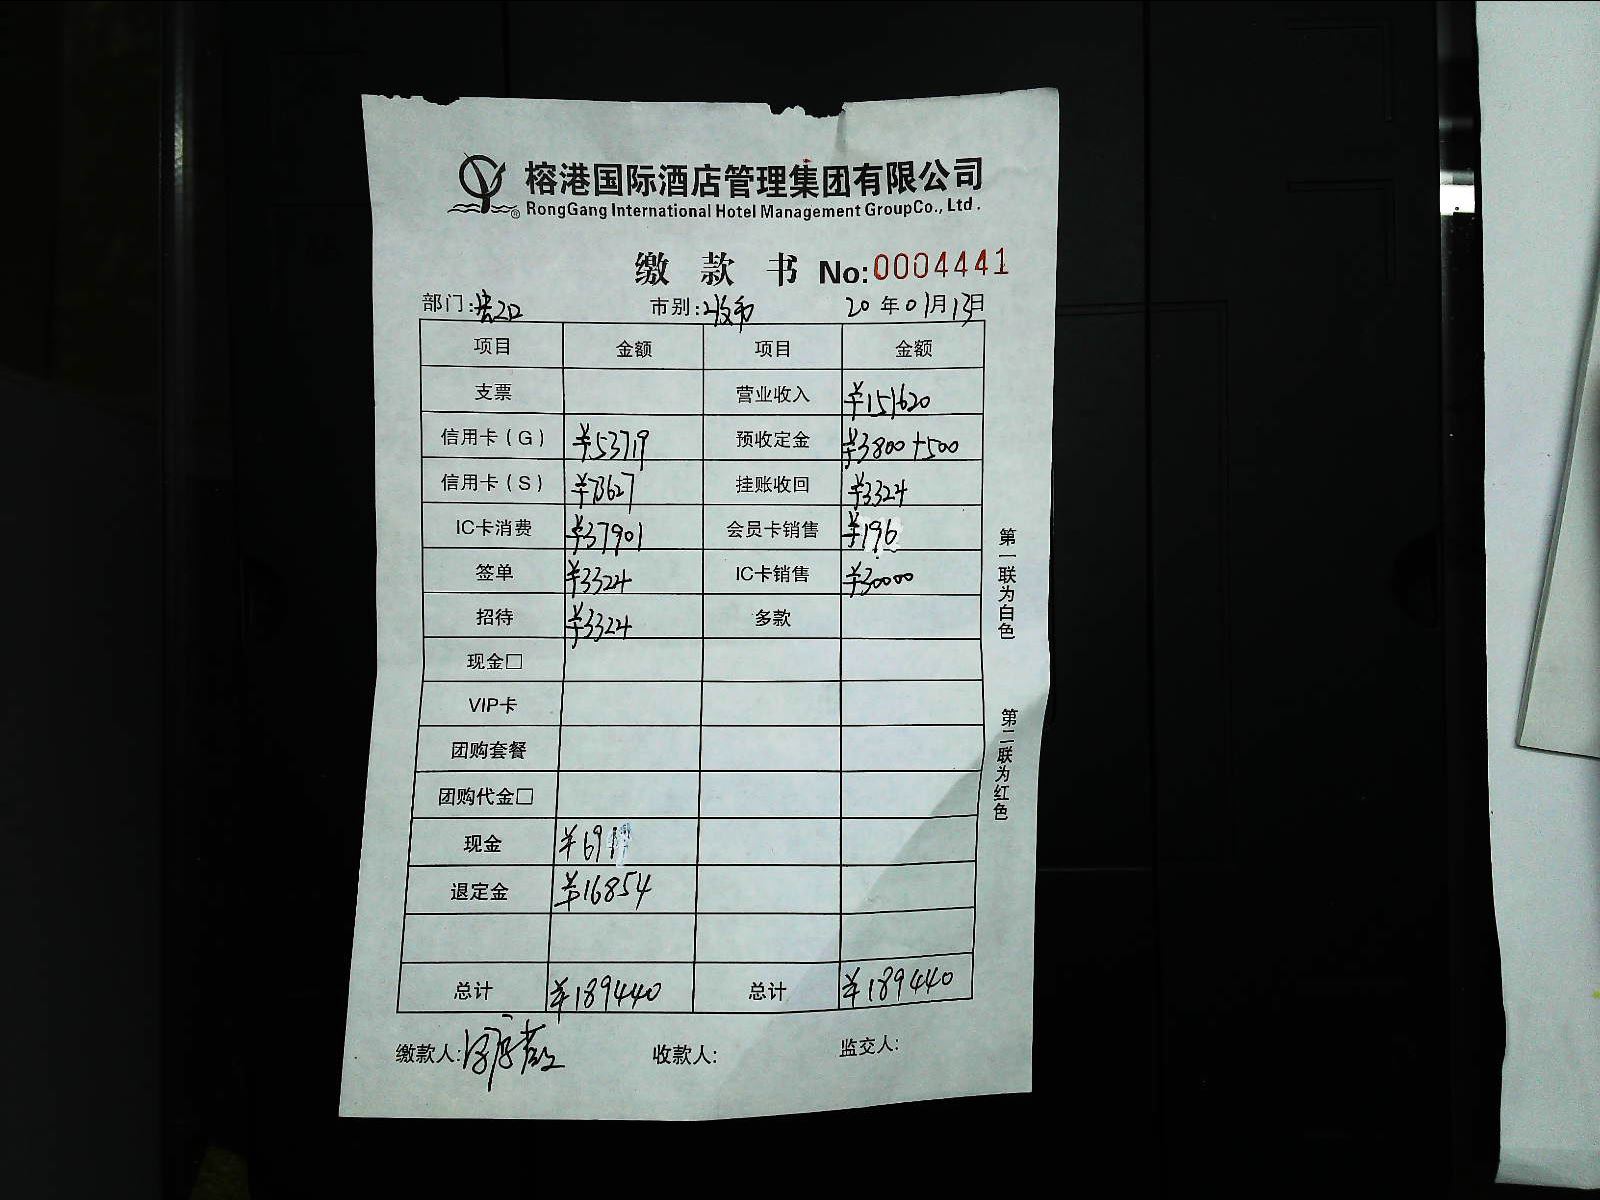 榕港国际酒店管理集团有限公司
RongGang International Hotel Management GroupCo., Ltd.
缴款书 No:0004441
部门: 市别: 20年01月13日
项目 金额 项目 金额
支票 营业收入 ¥151620
信用卡(G) ¥53719 预收定金 ¥3800+500
信用卡(S) ¥73627 挂账收回 ¥3324
IC卡消费 ¥37901 会员卡销售 ¥196
签单 ¥3324 IC卡销售 ¥30000
招待 ¥3324 多款
现金□
VIP卡
团购套餐
团购代金□
现金
退定金 ¥16854
总计 ¥189440 总计 ¥189440
缴款人: 收款人: 监交人:
第一联为白色
第二联为红色